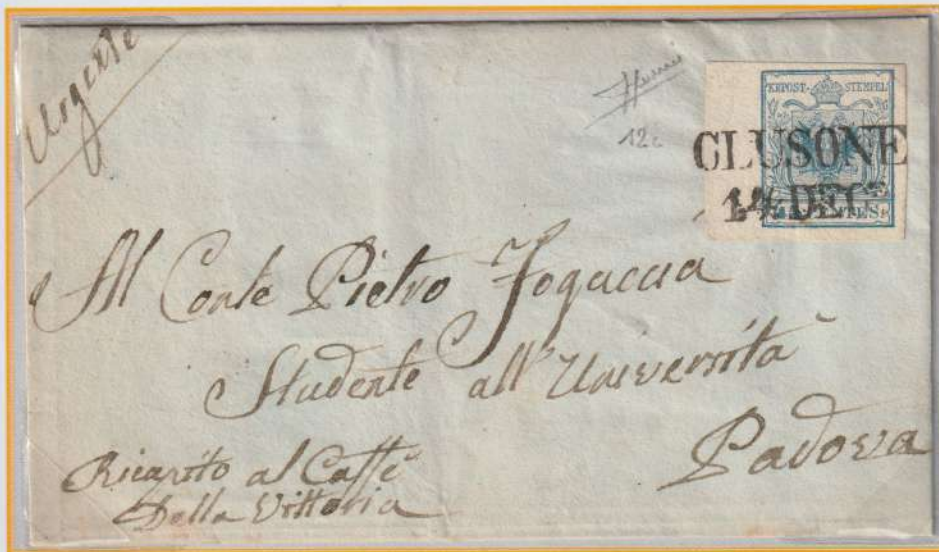 Urgente
12c
KKPOST-STEMPEL
CLUSONE
14 DEC
CENTES
Al Conte Pietro Fogaccia
Studente all' Università
Padova
Ricapito al Caffè
Della Vittoria